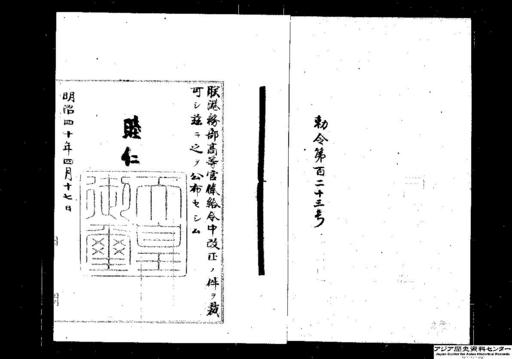 勅令第百二十三号
朕港務部高等官俸給令中改正ノ件ヲ裁
可シ茲ニ之ヲ公布セシム
睦仁
天皇
御璽
明治四十年四月十七日
アジア歴史資料センター
Japan Center for Asian Historical Records